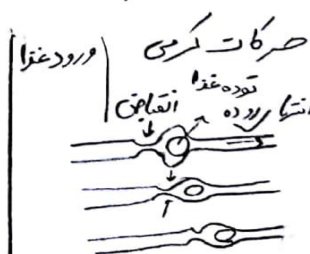 حرکات کرمی
ورود غذا
توده غذا
انقباض
انتهای روده